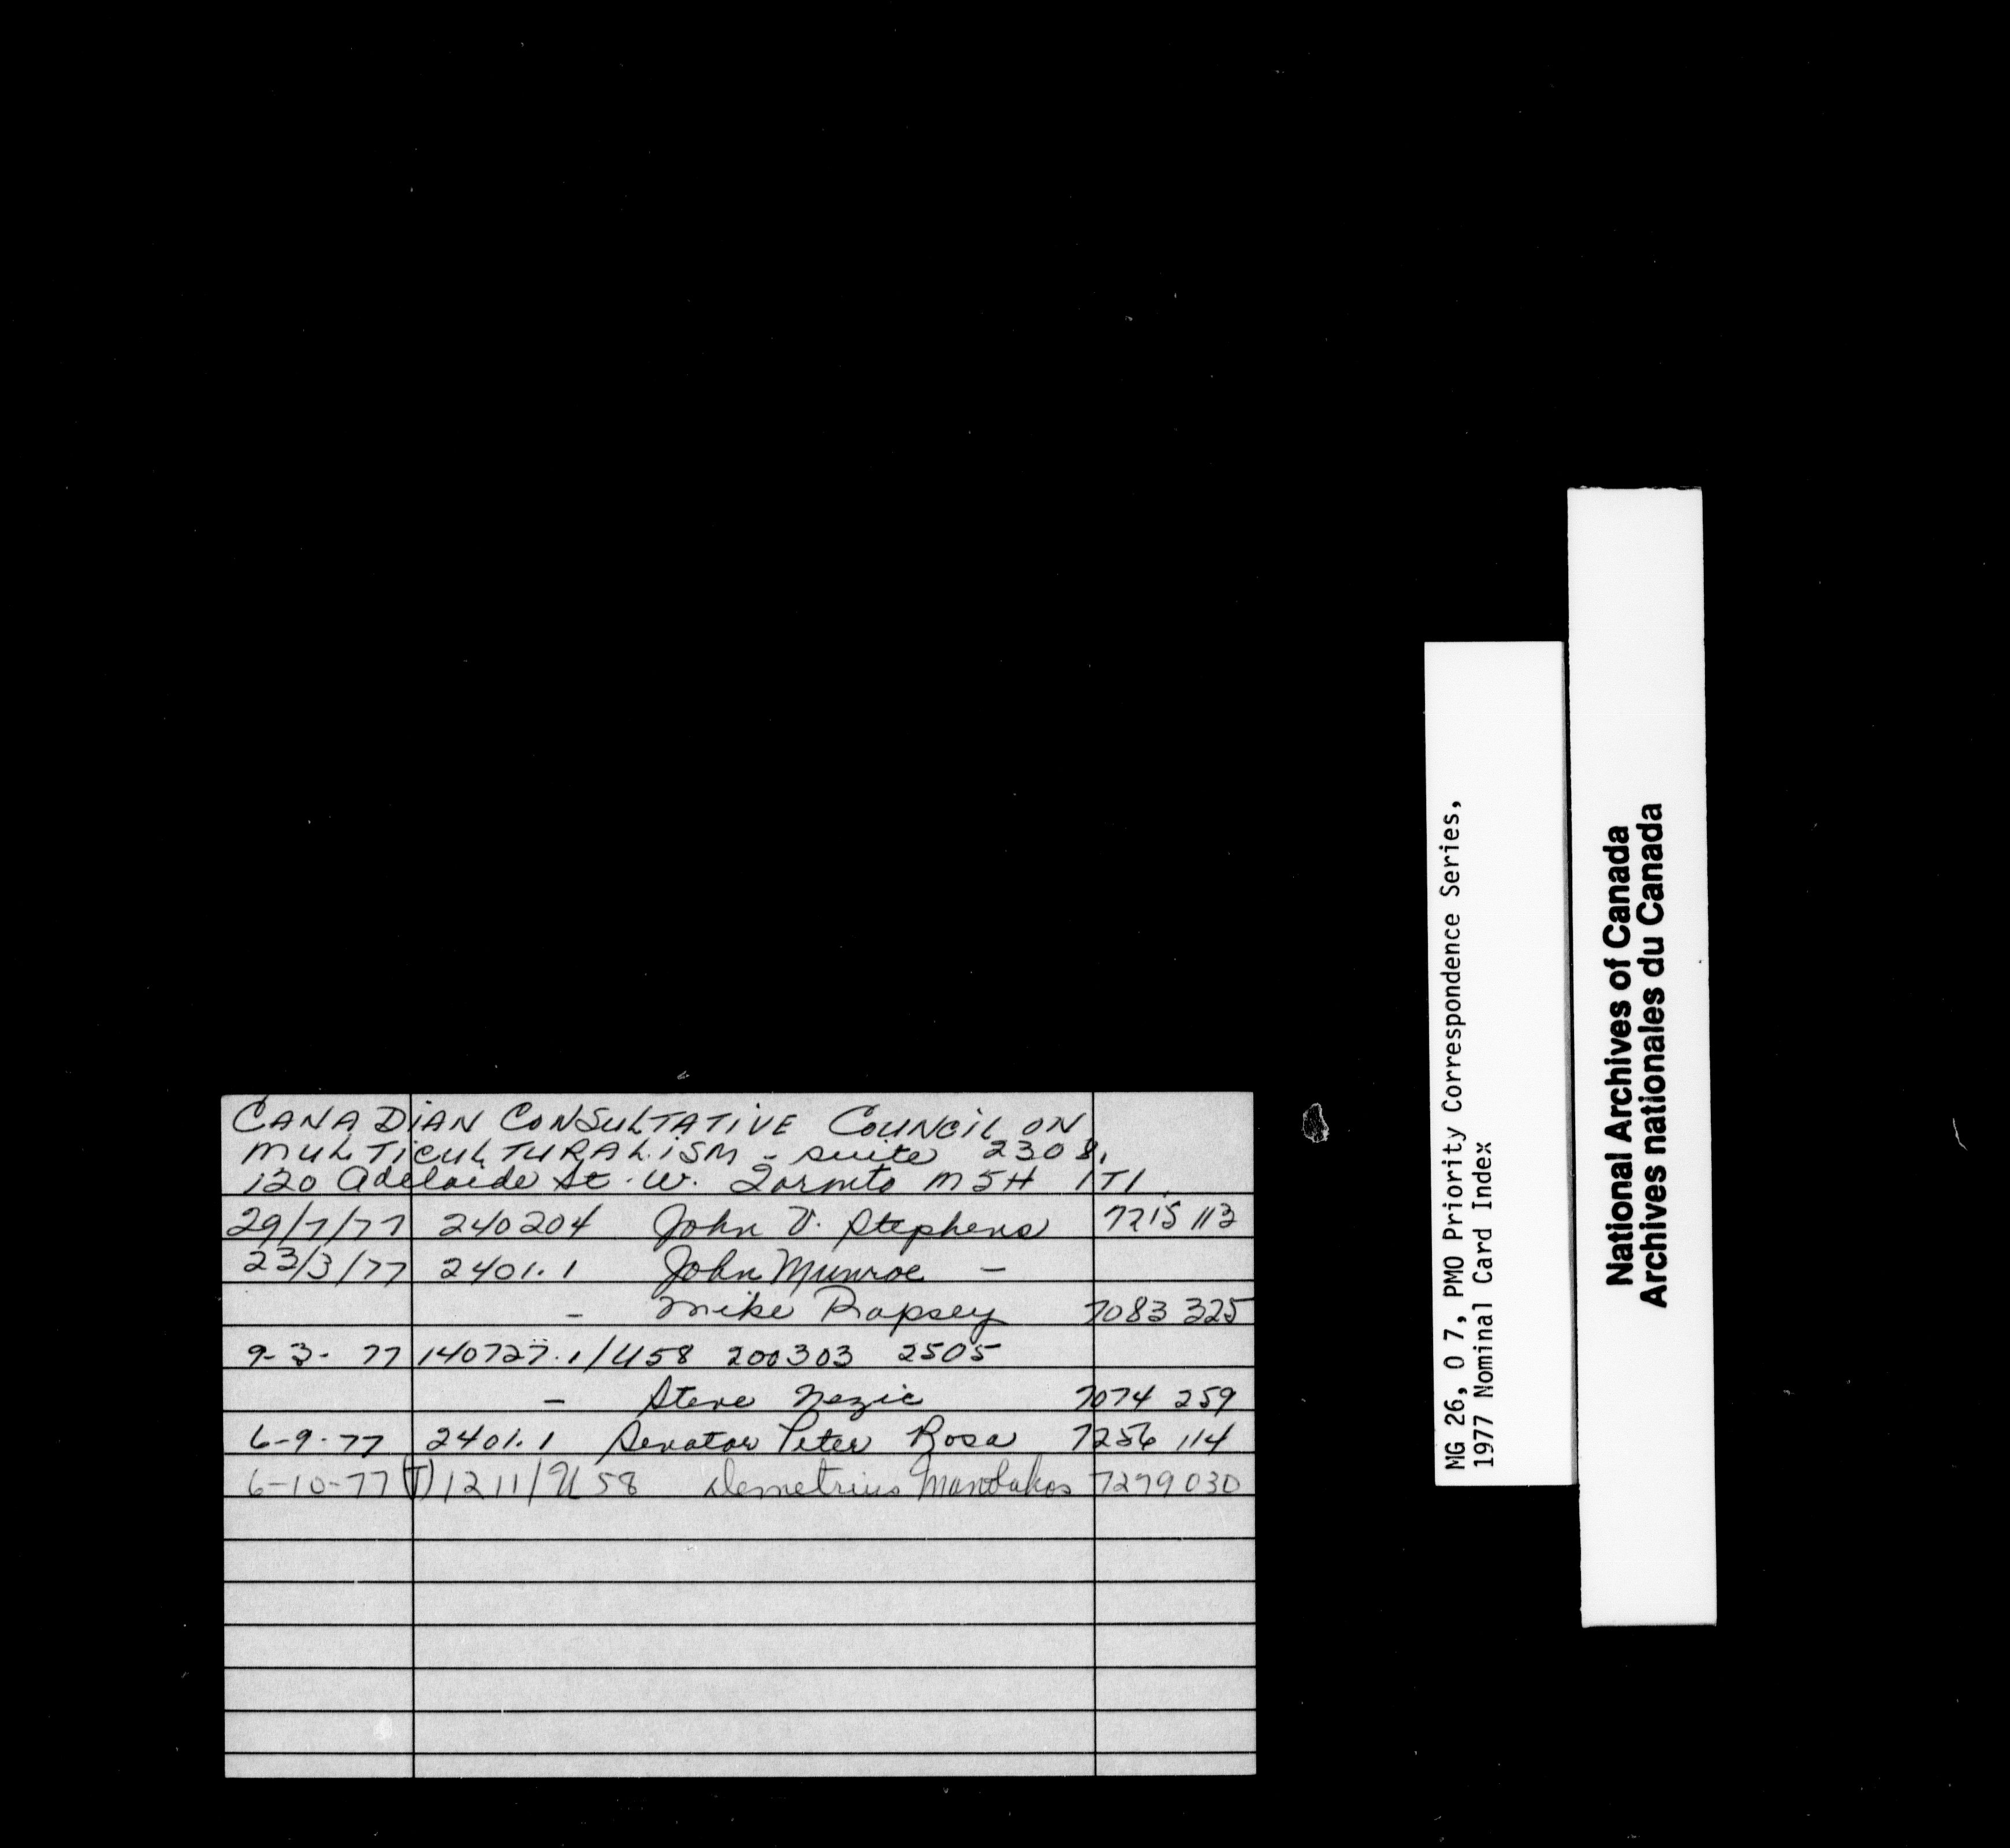 CANADIAN CONSULTATIVE COUNCIL ON
MULTICULTURALISM - suite 2308,
120 Adelaide St. W. Toronto M5H 1T1
29/7/77 240204 John V. Stephens 7215 113
23/3/77 2401.1 John Munroe -
- Mike Rapsey 7083 325
9-3-77 140727.1/U58 200303 2505
- Steve Nezic 7074 259
6-9-77 2401.1 Senator Peter Bosa 7256 114
6-10-77 (T) 1211/U58 Demetrius Manolakos 7279 030
MG 26, O 7, PMO Priority Correspondence Series,
1977 Nominal Card Index
National Archives of Canada
Archives nationales du Canada